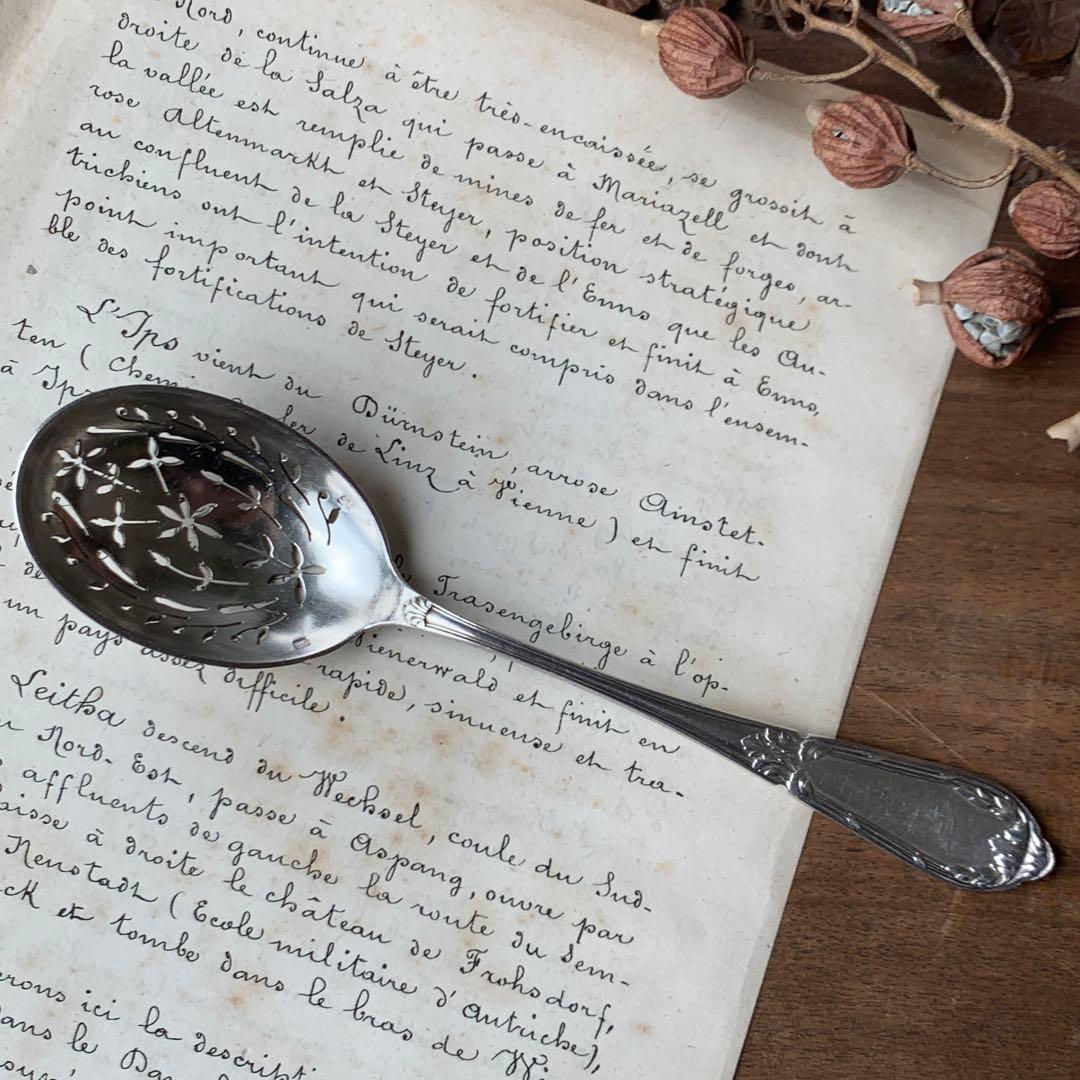 Nord, continue à être très-encaissée, se grossit à
droite de la Salza qui passe à Mariazell et dont
la vallée est remplie de mines de fer et de forges, ar-
rose Altenmarkt et Steyer, position stratégique
au confluent de la Steyer et de l'Enns que les Au-
trichiens ont l'intention de fortifier et finit à Enns,
point important qui serait compris dans l'ensem-
ble des fortifications de Steyer.
L'Ips vient du Dürnstein, arrose Amstet-
ten (Chemin de fer de Linz à Vienne) et finit
à Ips
Trasengebirge à l'op-
Wienerwald et finit en
rapide, sinueuse et tra-
un pays assez difficile.
Leitha descend du Wechsel, coule du Sud-
Nord-Est, passe à Aspang, ouvre par
affluents de gauche la route du Sem-
à droite le château de Frohsdorf,
Neustadt (Ecole militaire d'Autriche),
et tombe dans le bras de
ici la
dans le